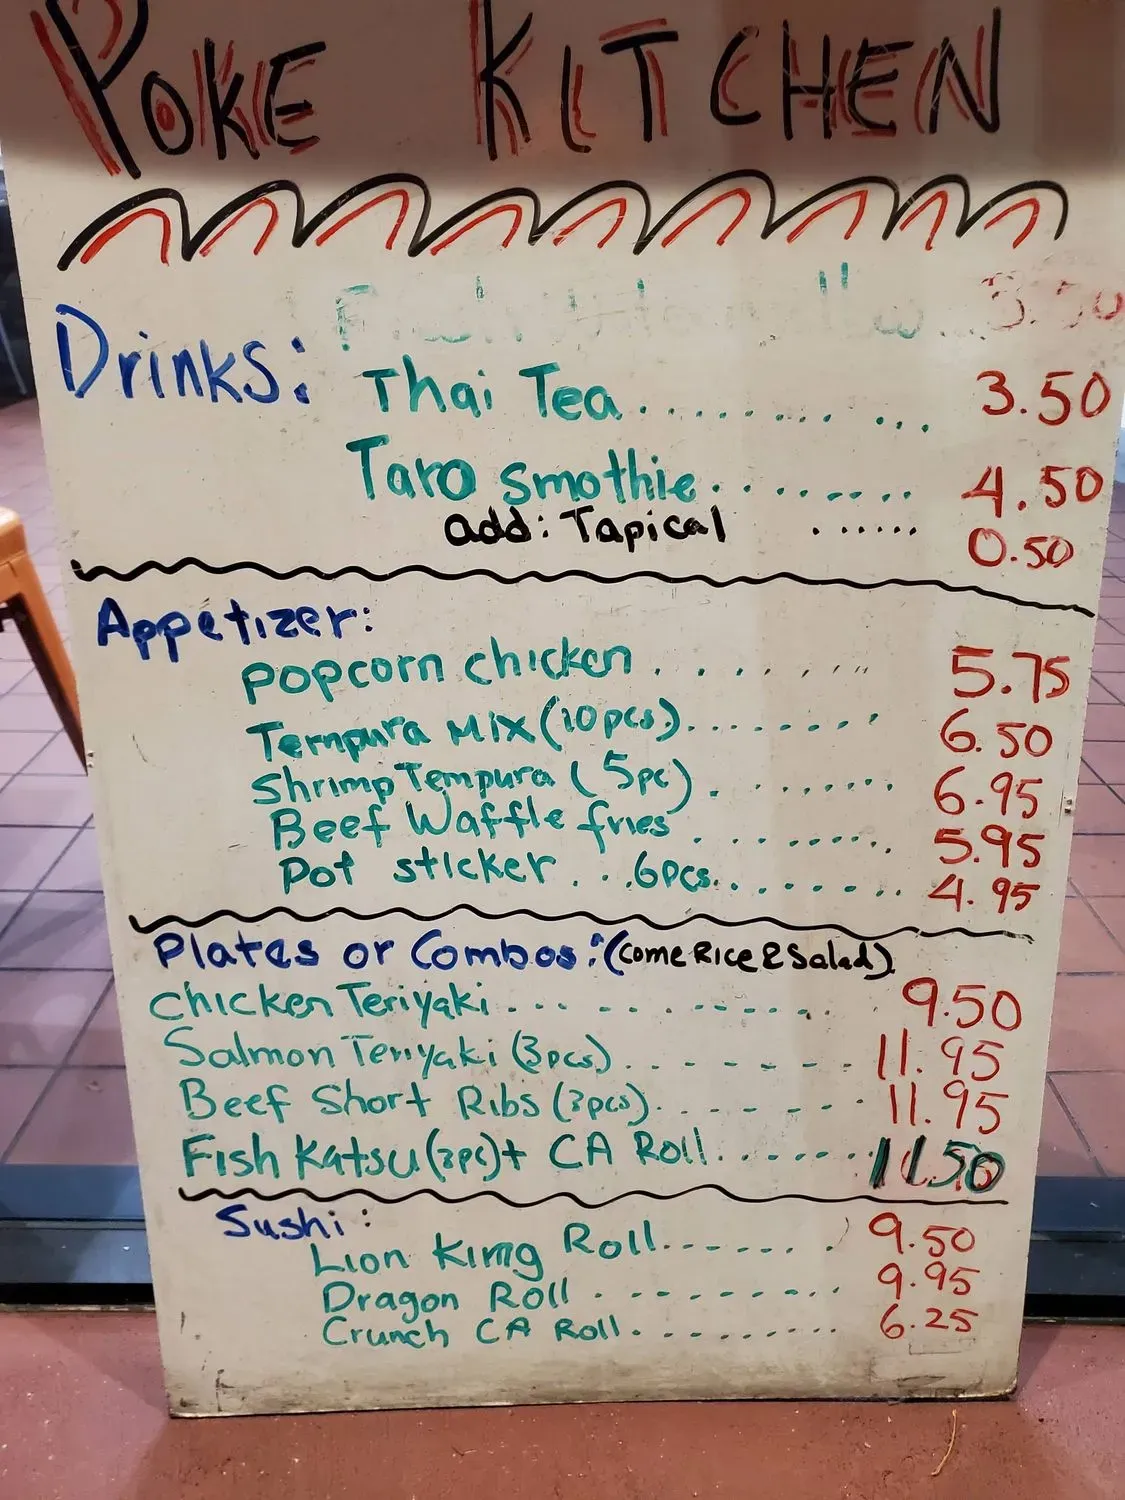 POKE KITCHEN
3.50
Drinks:
Thai Tea.................. 3.50
Taro smothie......... 4.50
add: Tapical ...... 0.50
Appetizer:
popcorn chicken......... 5.75
Tempura Mix (10pcs)........ 6.50
Shrimp Tempura (5pc)......... 6.95
Beef Waffle fries......... 5.95
Pot sticker...6pcs......... 4.95
Plates or Combos: (come Rice & Salad)
Chicken Teriyaki............ 9.50
Salmon Teriyaki (3pcs)........ 11.95
Beef Short Ribs (3pcs)........ 11.95
Fish Katsu (2pc)+ CA Roll........ 11.50
Sushi:
Lion King Roll........ 9.50
Dragon Roll.......... 9.95
Crunch CA Roll......... 6.25